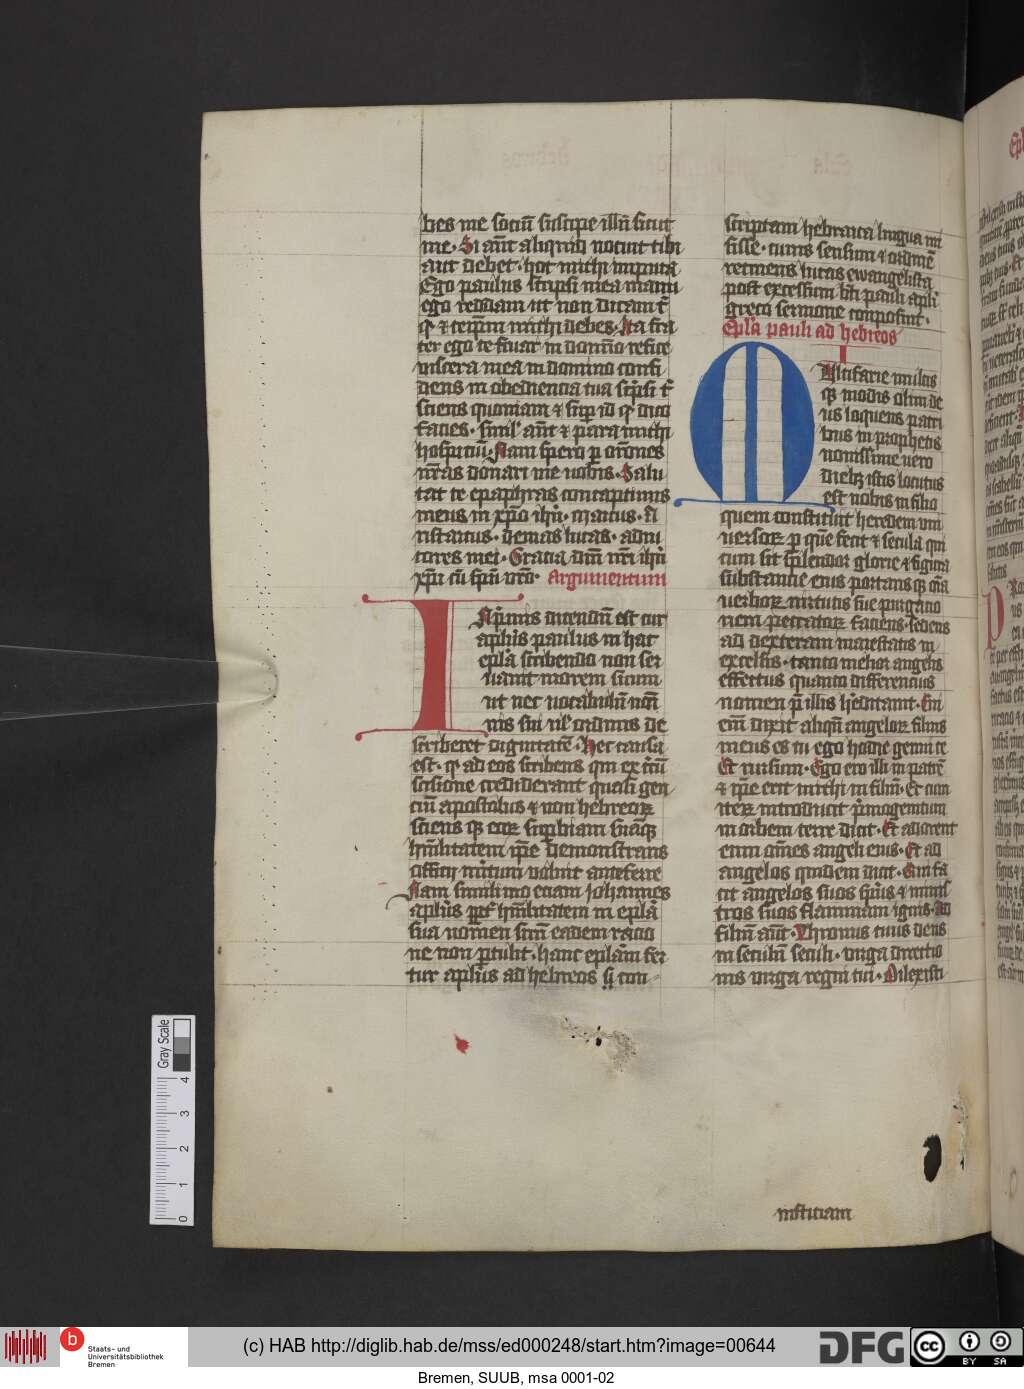 bes me sociū suscipe illū sicut
me. Si aūt aliquid nocuit tibi
aut debet. hoc michi imputa
Ego paulus scripsi mea manu
ego reddam ut non dicam t̄
qᷓ ⁊ teip̄m michi debes. Ita fra
ter ego te fruar in domino refice
viscera mea in domino confi
dens in obediencia tua scp̄si t̄
sciens quoniam ⁊ suꝑ id qᷓ dico
facies. simlʼ aūt ⁊ para michi
hospiciū. Nam spero ꝑ orōnes
vr̄as donari me vobis. Salu
tat te epaphras concaptiuus
meus in xp̄o ih̄u. marcus. A
ristarcus. demas lucas. adiu
tores mei. Gracia dn̄i nr̄i ih̄u
xp̄i cū sp̄u vr̄o. Argumentum
INp̄mis dicendū est cur
aplʼus paulus in hac
epl̄a scribendo non ser
uauit morem suum
ut uel uocabulū nom̄
nis sui ulʼ ordinis de
scriberet dignitatē. Hec causa
est. qᷓ ad eos scribens qui ex circū
scisione crediderant quasi gen
ciū apostolus ⁊ non hebreoꝝ
sciens qꝫ eoꝝ suꝑbiam suāqꝫ
hūilitatem ip̄e demonstrans
officij m̄itum voluit anteferre
Nam simili mo eciam Johannes
aplʼus ꝓpt̄ hūilitatem in epl̄a
sua nomen suū eadem racio
ne non p̄tulit. hanc eplām fer
tur aplʼus ad hebreos 9 con
scriptam hebraica lingua mi
sisse. cuius sensum ⁊ ordinē
retinens lucas ewangelista
post excessum bt̄i pauli apl̄i
greco sermone conposuit.
Epl̄a pauli ad hebreos
I
MUltifarie multis
qꝫ modis olim de
us loquens patri
bus in prophetis
nouissime uero
diebꝫ istis locutus
est nobis in filio
quem constituit heredem uni
uersoꝝ ꝑ quē fecit ⁊ secula qui
cum sit splendor glorie ⁊ figura
substancie eius portans qꝫ om̄a
uerbo uirtutis sue purgacio
nem peccatoꝝ faciens. sedens
ad dexteram maiestatis in
excelsis. tanto melior angelis
effectus quanto differencius
nomen p̄ illis h̄editauit. Cui
em̄ dixit aliqn̄ angeloꝝ filius
meus es tu ego hodie genui te
Et rursum. Ego ero illi in patrē
⁊ ip̄e erit michi in filiū. Et cum
iteꝝ introducit p̄mogenitum
in orbem terre dicit. Et adorent
eum om̄es angeli eius. Et ad
angelos quidem dicit. Qui fa
cit angelos suos sp̄us ⁊ minis
tros suos flammam ignis. Ad
filiū aūt. Thronus tuus deus
in seculū seculi. uirga directio
nis uirga regni tui. Dilexisti
iusticiam
Gray Scale
4
3
2
1
0
b
Staats- und
Universitätsbibliothek
Bremen
(c) HAB http://diglib.hab.de/mss/ed000248/start.htm?image=00644
DFG
cc
BY SA
Bremen, SUUB, msa 0001-02